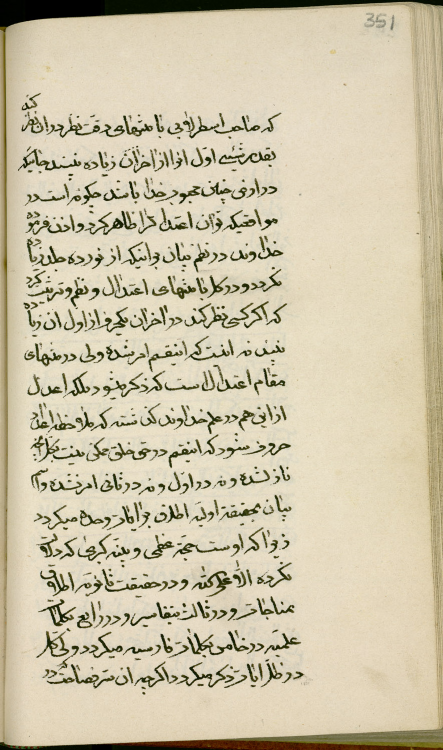 351
کند
که صاحب اسطرلابی با منتهای دقت نظر در ان نظر
بقدر شیئی اول انرا از اخران زیاده نبیند چنانکه
در ارض چنین محبوب خدا باشد چگونه است در
مواقعیکه قران اعتدال را ظاهر کرد و اذن فرموده
خداوند در نظم بیان فرانیکه از نوزده جلد زیاده
نگردد و در کل با منتهای اعتدال و نظم و ترتیب گردد
که اگر کسی نظر کند در اخران یکحرف از اول ان زیاده
نبیند نه اینست که اینقسم امر شده ولی در منتهای
مقام اعتدال است که ذکر میشود بلکه اعدل
از این هم در علم خداوند کذشته که ملاحظه اعداد
حروف شود که اینقسم در حق خلق ممکن نیست
نازلشده و نه در اول و نه در ثانی امر نشده و اسم
بیان بحقیقت اولیه اطلاق بر ایات وحده میگردد
زیرا که اوست حجت عظمی و بینه کبری که دلالت
نکرده الا علی الله و در حقیقت ثانویه اطلاق
بمناجات و در ثالث بتفاسیر و در رابع بکلمات
علمیه و در خامس بکلمات فارسیه میگردد ولی کل
در ظل ایات ذکر میگردد اگرچه ان سر فصاحت که در